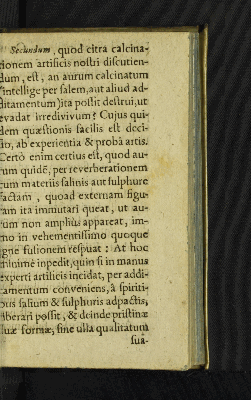 Secundum, quod citra calcina-
tionem artificis nostri discutien-
dum, est, an aurum calcinatum
(intellige per salem, aut aliud ad-
ditamentum) ita possit destrui, ut
evadat irredivivum? Cujus qui-
dem quæstionis facilis est deci-
sio, ab experientia & proba artis.
Certò enim certius est, quod au-
rum quidẽ, per reverberationem
cum materiis salinis aut sulphure
factam, quoad externam figu-
ram ita immutari queat, ut au-
rum non ampliùs appareat, im-
mo in vehementissimo quoque
igne fusionem respuat: At hoc
minimè inpedit, quin si in manus
experti artificis incidat, per addi-
tamentum conveniens, à spiriti-
bus salium & sulphuris adpactis,
liberari possit, & deinde pristinæ
suæ formæ, sine ulla qualitatum
sua-